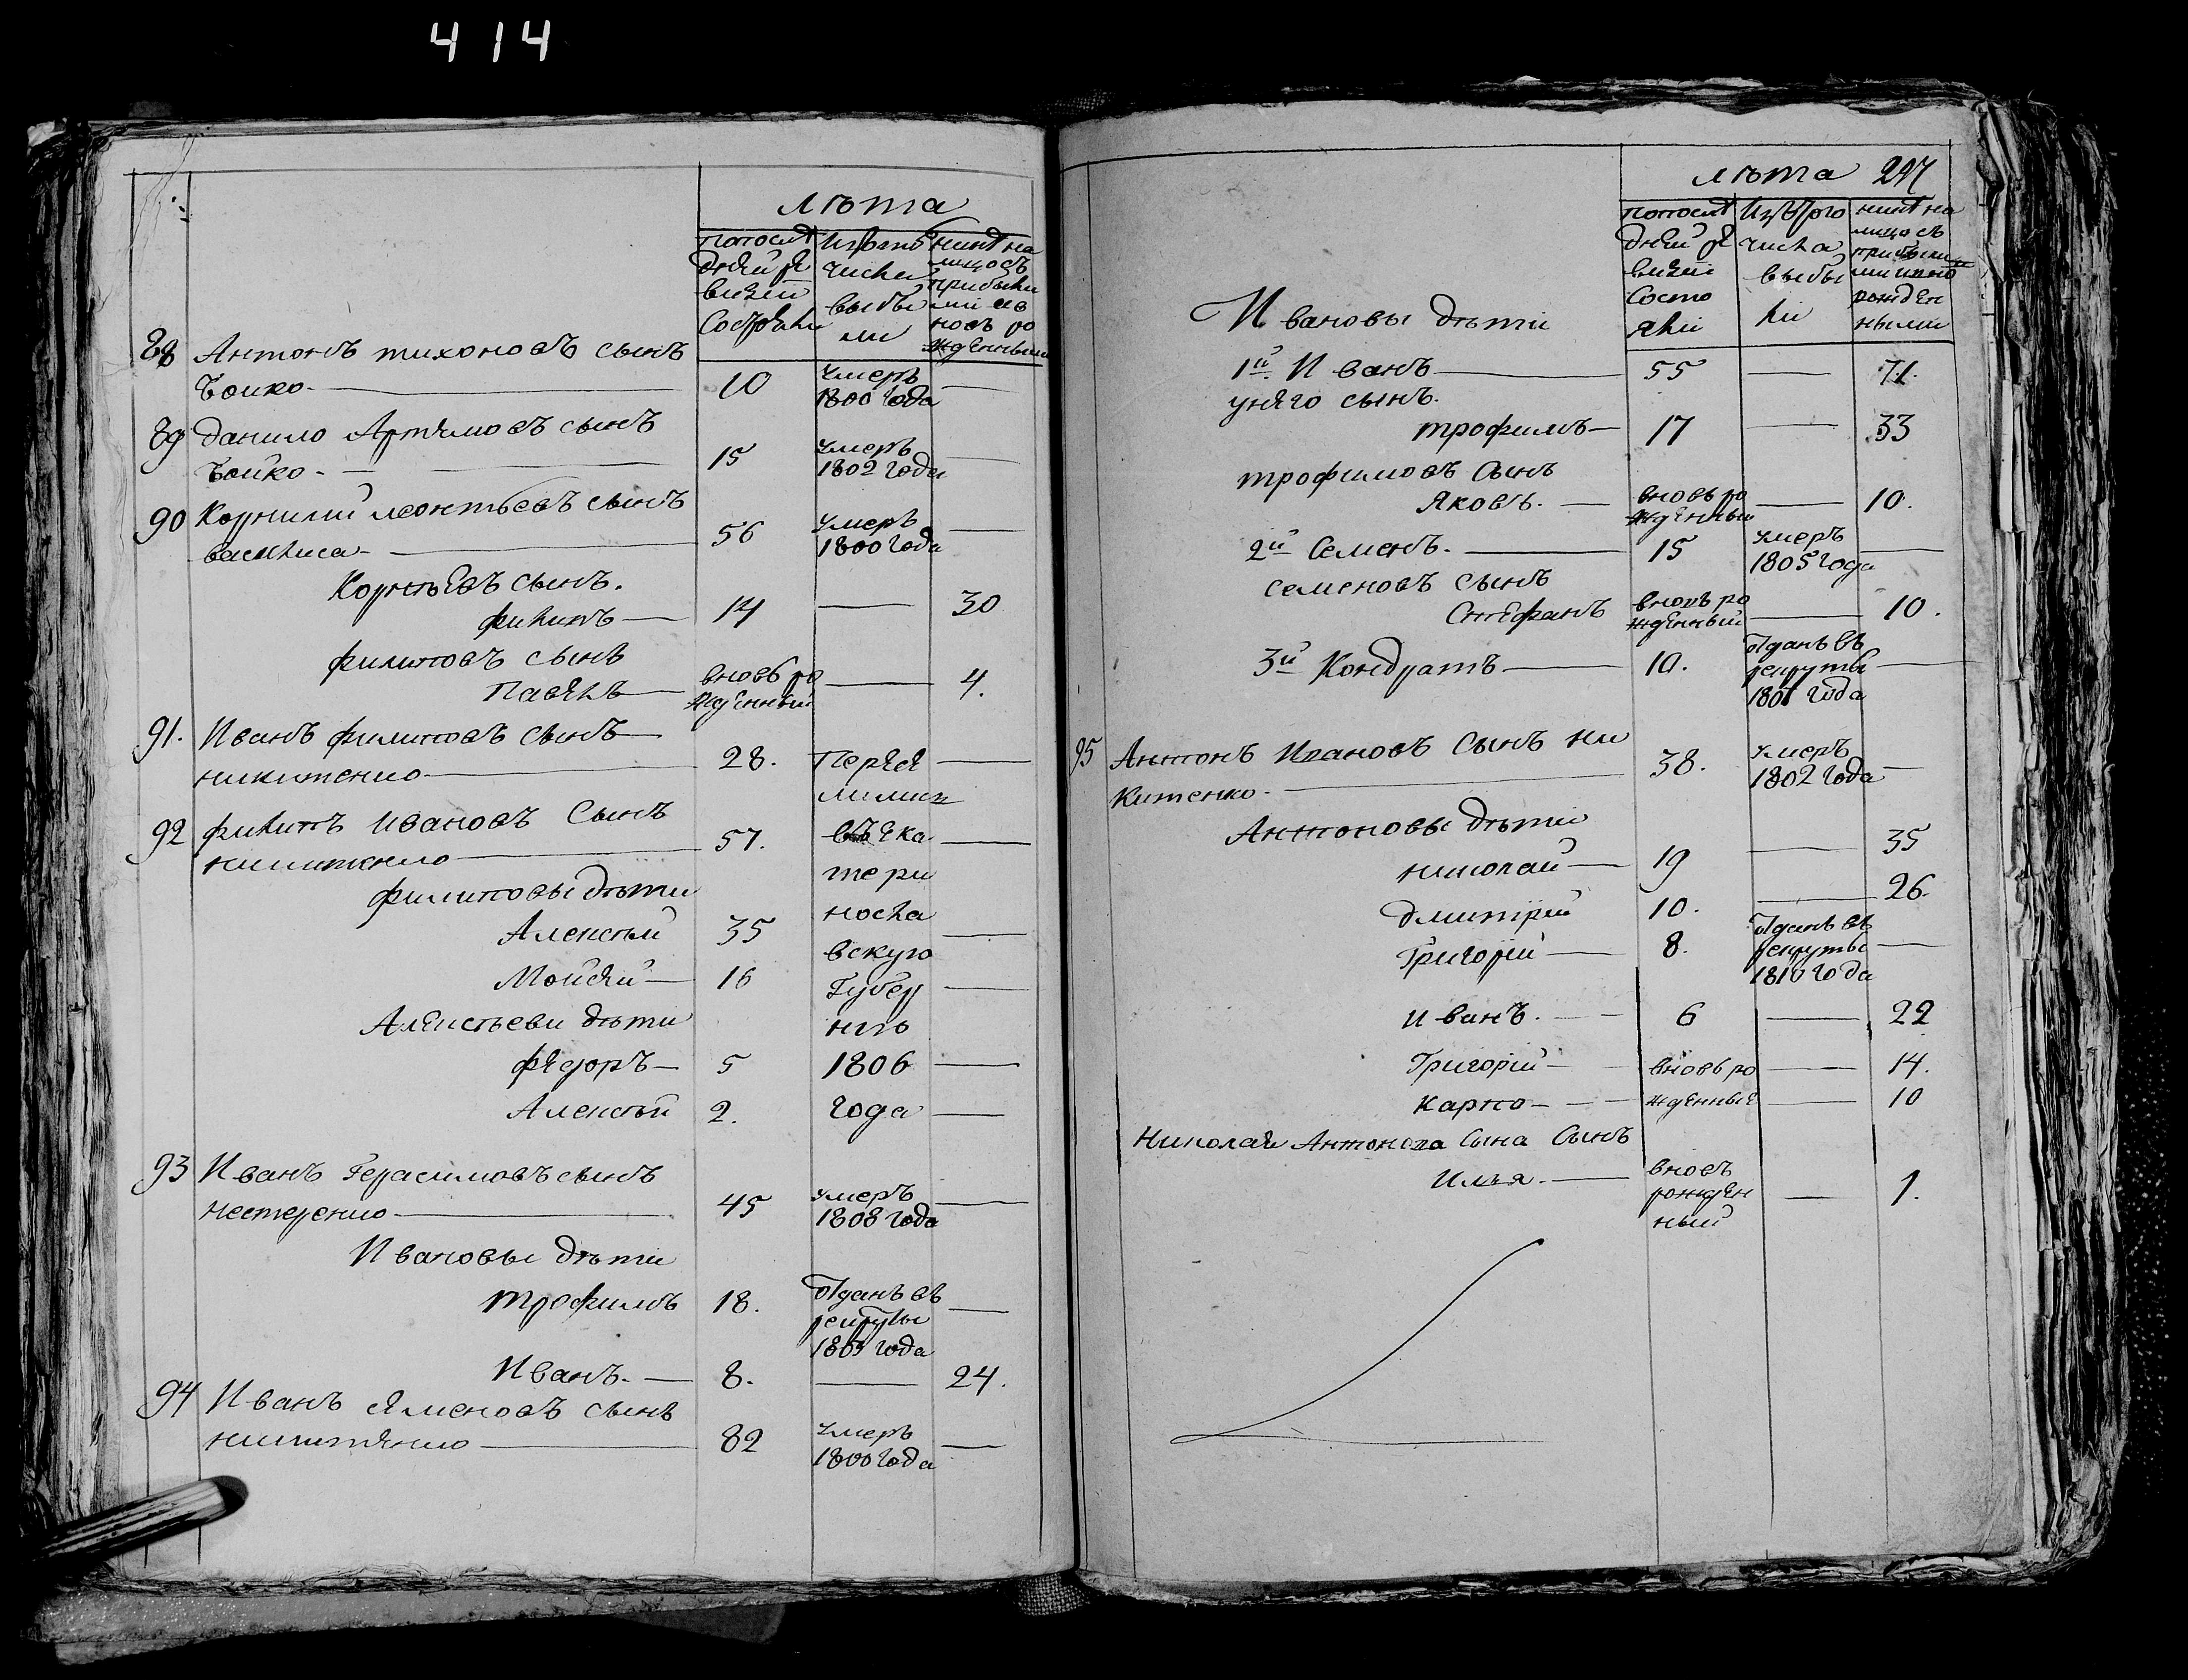 414
лѣта
попослѣ
дней ре
визіи
Состояли
Изътого
числа
выбы
ли
нынѣ на
лицо съ
прибылы
ми и въ
новь ро
жденными
88 Антонъ тихоновъ сынъ
Бойко 10 умеръ
1800 года
89 данило Артемовъ сынъ
Бойко 15 умеръ
1802 года
90 Корнилий леонтьевъ сынъ
56 умеръ
1800 года
Корнѣевъ сынъ.
филипъ 14 30
филиповъ сынъ
Павелъ вновь ро
жденный 4.
91. Иванъ филиповъ сынъ
никитенко 28. Пересе
лились
92 филипъ ивановъ Сынъ
никитенко 57. въ ека
тери
филиповы дѣти
носла
Алексѣй 35
вскую
Мойсей 16 Губер
Алексѣеви дѣти нию
федоръ 5 1806
Алексѣй 2. года
93 Иванъ Герасимовъ сынъ
нестеренко 45 умеръ
1808 года
Ивановы дѣти
трофимъ 18. Отданъ въ
рекруты
года
Иванъ. 8. 24.
94 Иванъ Семеновъ сынъ
никитенко 82 умеръ
1800 года
лѣта 297
попослѣ
дней ре
визіи
Состо
яли
Изътого
числа
выбы
ли
нынѣ на
лицо съ
прибылы
ми и вно
рожден
ными
Ивановы дѣти
1й Иванъ 55 71.
унего сынъ.
трофимъ 17 33
трофимовъ Сынъ
Яковъ. вновь ро
жденный 10.
2й Семенъ. 15 умеръ
1805 года
семеновъ сынъ
Стефанъ вновь ро
жденный 10.
3й Кондратъ 10. Отданъ въ
рекруты
года
95 Антонъ Ивановъ Сынъ ни
китенко 38. умеръ
1802 года
Антоновы дѣти
николай 19 35
дмитрій 10. 26.
Григорій 8. Отданъ въ
рекруты
1810 года
иванъ. 6 22
Григорій вновь ро 14.
карпо жденные 10
Николая Антонова Сина Сынъ
Илья. вновь
рожден
ный 1.